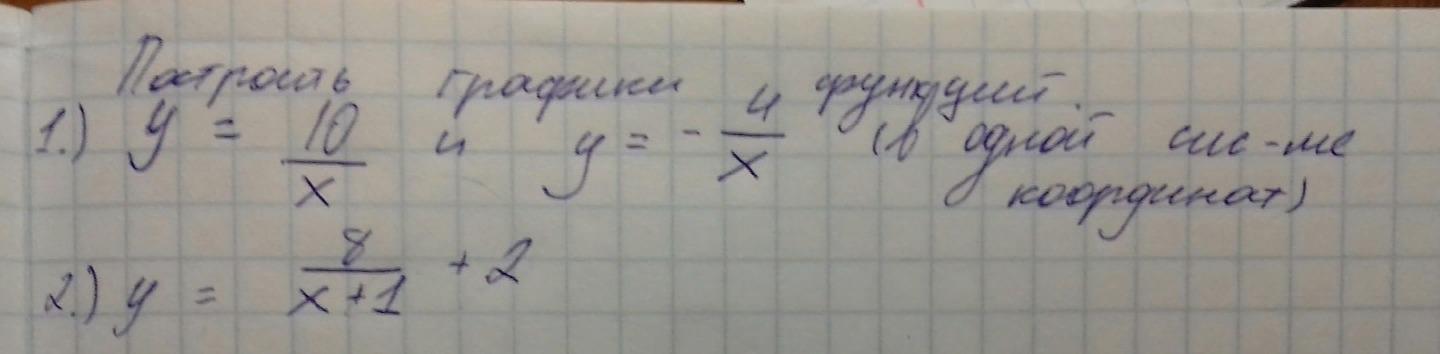 Построить графики функций.
1.) y = 10/x и y = - 4/x (в одной сис-ме
координат)
2.) y = 8/(x+1) + 2